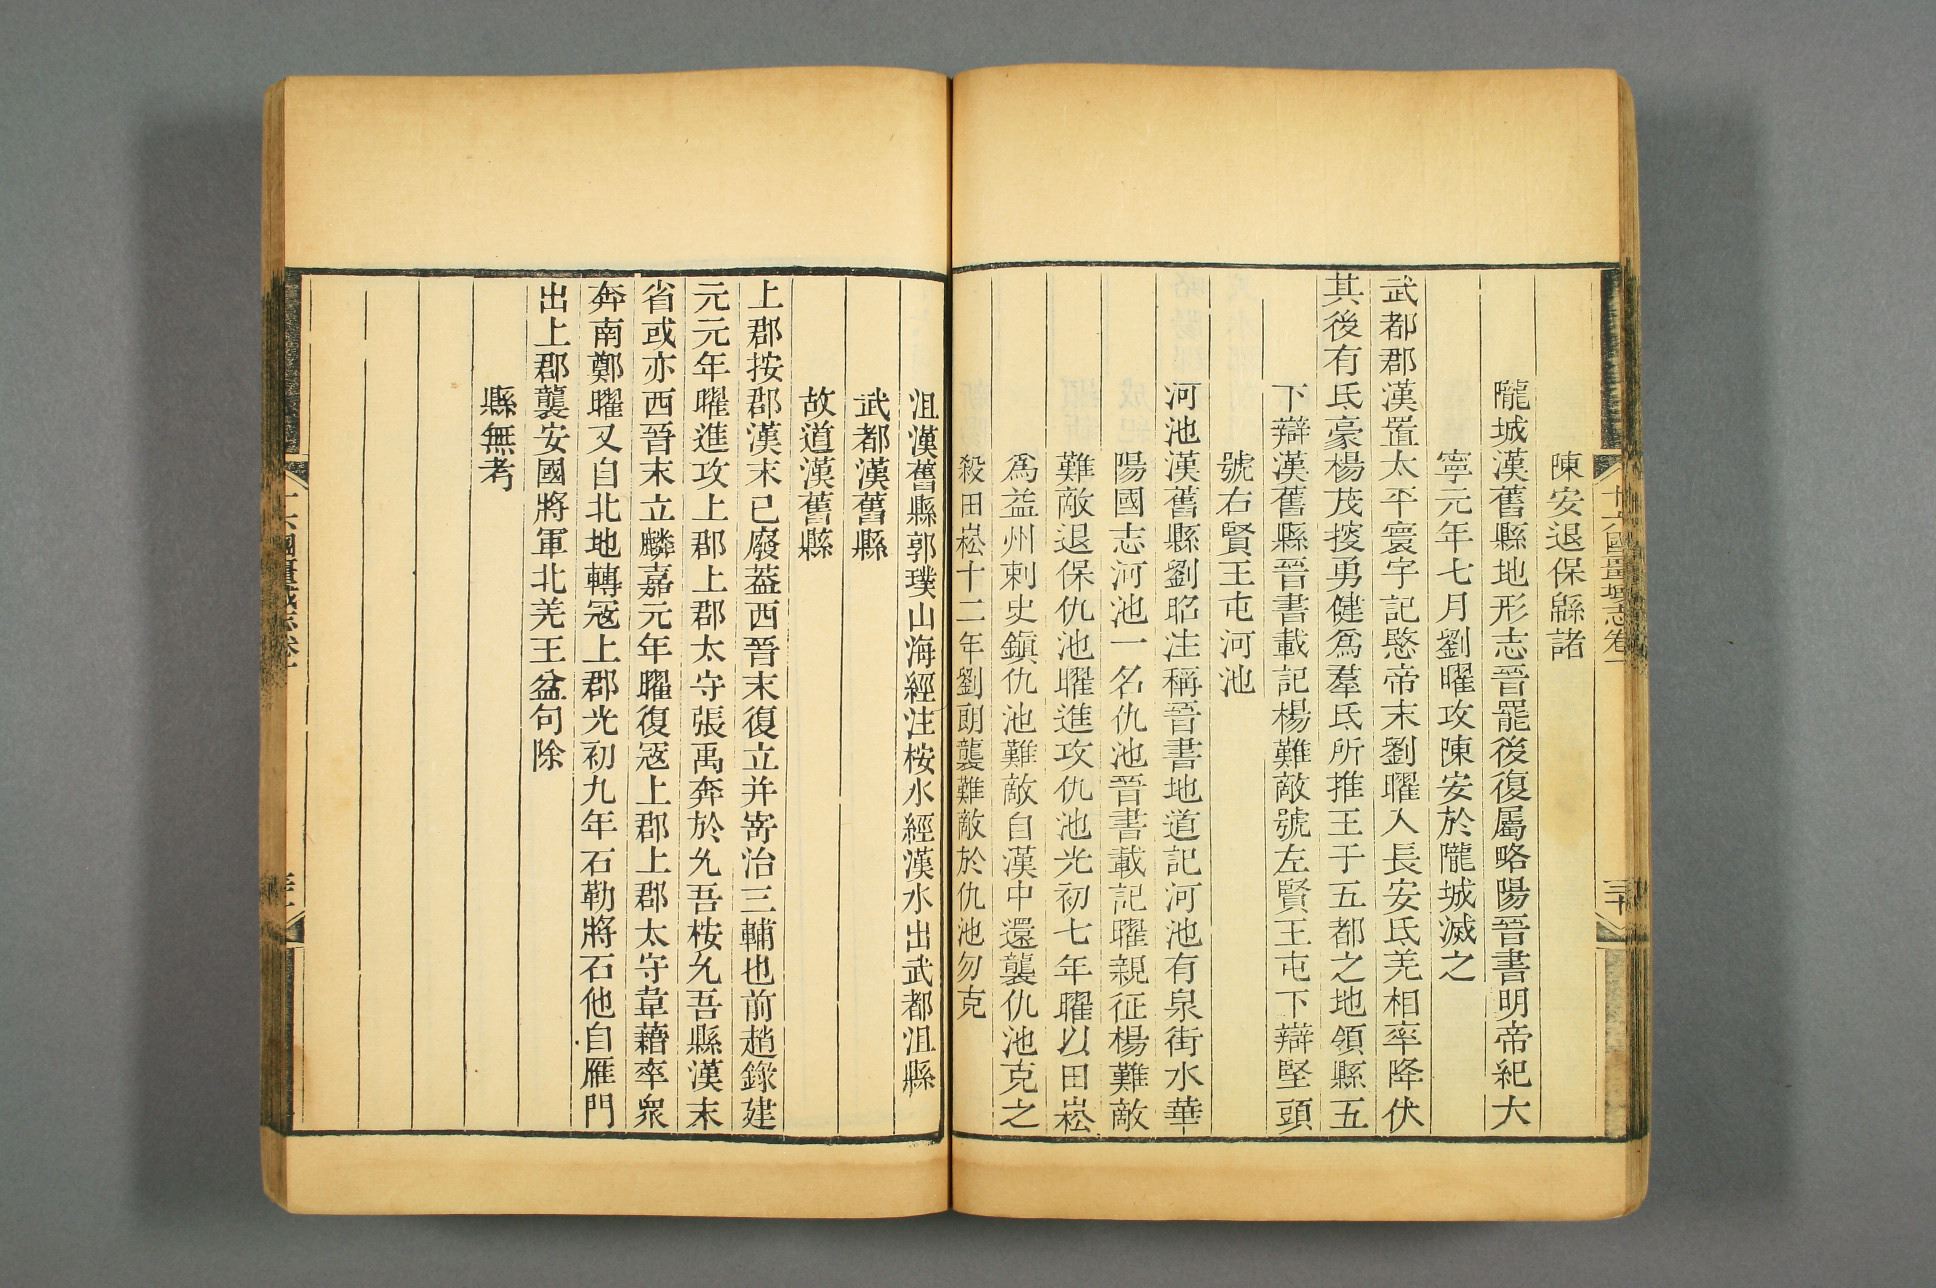 陳安退保緜諸
隴城漢舊縣地形志晉罷後復屬略陽晉書明帝紀大
寧元年七月劉曜攻陳安於隴城滅之
武都郡漢置太平寰宇記愍帝末劉曜入長安氐羌相率降伏
其後有氐豪楊茂搜勇健爲羣氐所推王于五都之地領縣五
下辯漢舊縣晉書載記楊難敵號左賢王屯下辯堅頭
號右賢王屯河池
河池漢舊縣劉昭注稱晉書地道記河池有泉街水華
陽國志河池一名仇池晉書載記曜親征楊難敵
難敵退保仇池曜進攻仇池光初七年曜以田崧
爲益州刺史鎭仇池難敵自漢中還襲仇池克之
殺田崧十二年劉朗襲難敵於仇池勿克
沮漢舊縣郭璞山海經注桉水經漢水出武都沮縣
武都漢舊縣
故道漢舊縣
上郡按郡漢末已廢葢西晉末復立并寄治三輔也前趙錄建
元元年曜進攻上郡上郡太守張禹奔於允吾桉允吾縣漢末
省或亦西晉末立麟嘉元年曜復寇上郡上郡太守韋藉率衆
奔南鄭曜又自北地轉寇上郡光初九年石勒將石他自雁門
出上郡襲安國將軍北羌王盆句除
縣無考
十六國疆域志卷一
三十